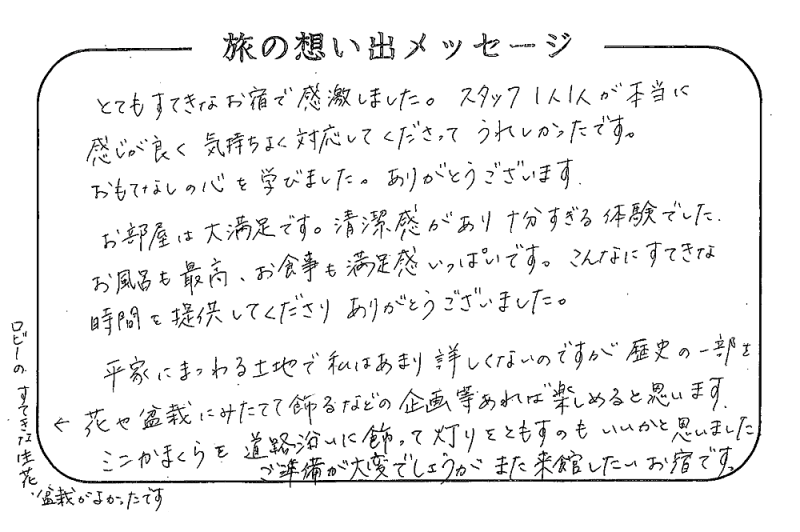 旅の想い出メッセージ
とてもすてきなお宿で感激しました。スタッフ1人1人が本当に
感じが良く気持ちよく対応してくださってうれしかったです。
おもてなしの心を学びました。ありがとうございます.
お部屋は大満足です。清潔感があり十分すぎる体験でした.
お風呂も最高、お食事も満足感いっぱいです。こんなにすてきな
時間を提供してくださりありがとうございました。
平家にまつわる土地で私はあまり詳しくないのですが歴史の一部を
← 花や盆栽にみたてて飾るなどの企画等あれば楽しめると思います.
ミニかまくらを道路沿いに飾って灯りをともすのもいいかと思いました
ご準備が大変でしょうがまた来館したいお宿です。
ロビーのすてきな生花
盆栽がよかったです